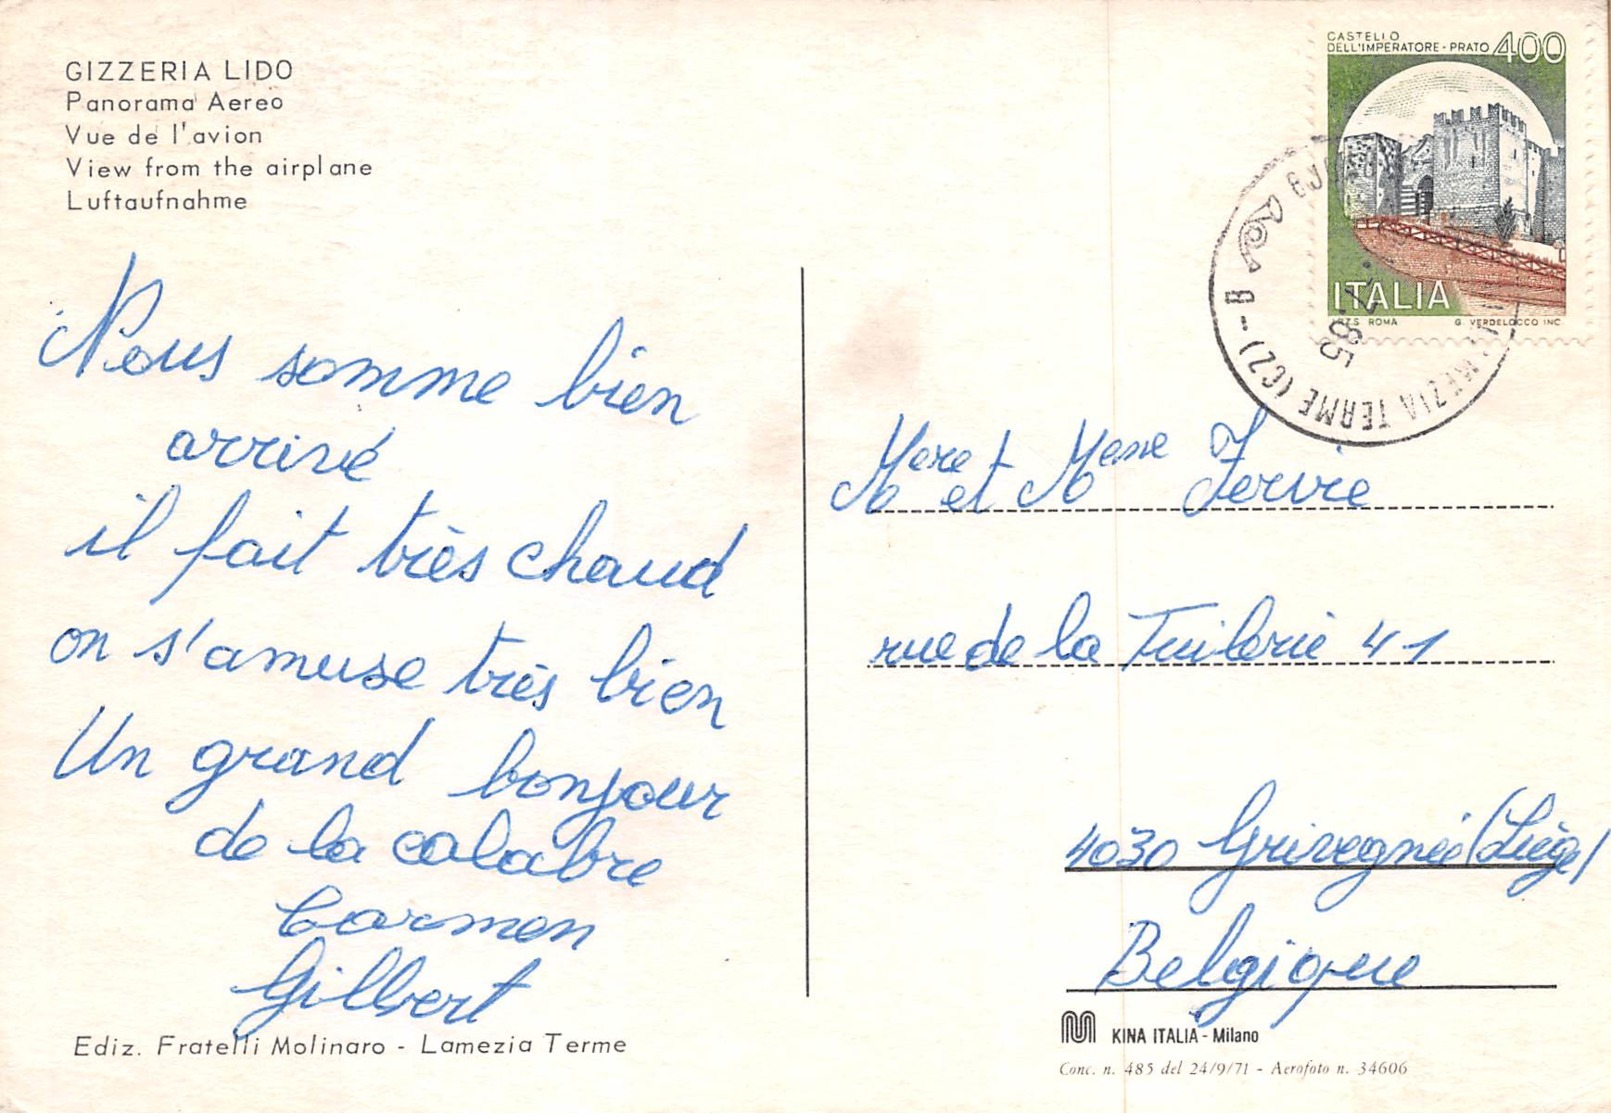 GIZZERIA LIDO
Panorama Aereo
Vue de l'avion
View from the airplane
Luftaufnahme
Nous somme bien
arrivé
il fait très chaud
on s'amuse très bien
Un grand bonjour
de la calabre
Carmen
Gilbert
Ediz. Fratelli Molinaro - Lamezia Terme
CASTELLO
DELL'IMPERATORE - PRATO 400
ITALIA
I.P.Z.S. ROMA G. VERDELOCCO INC.
LAMEZIA TERME (CZ) - B
85
et
rue de la Tuilerie 41
4030 Grivegnée (Liège)
Belgique
KINA ITALIA - Milano
Conc. n. 485 del 24/9/71 - Aerofoto n. 34606